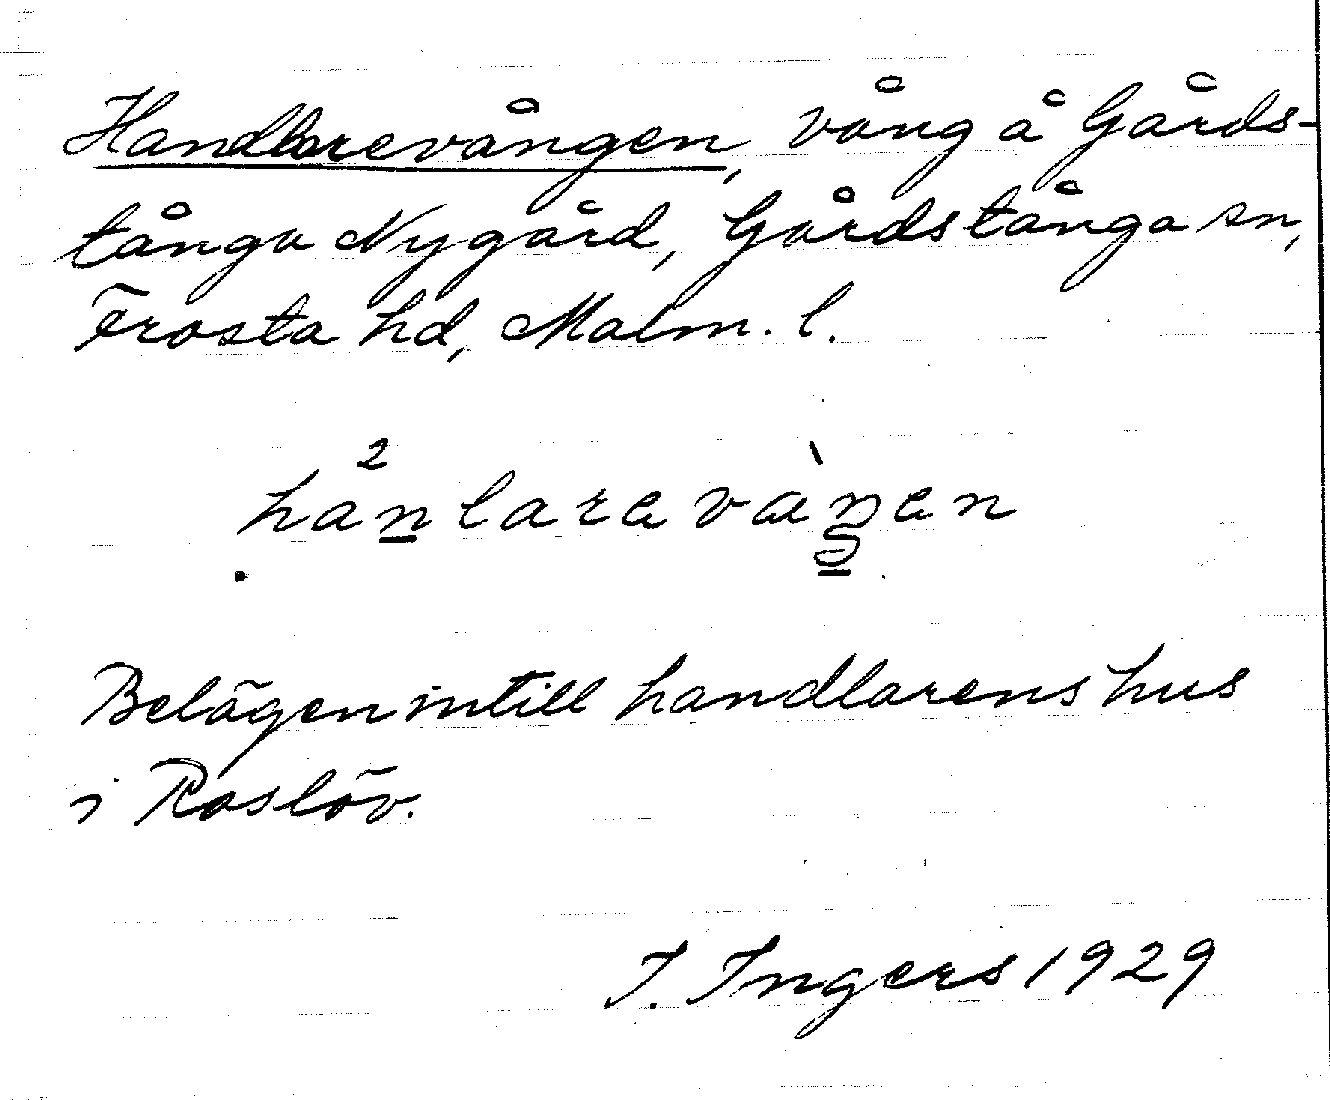 Handlarevången, vång å Gårds-
tånga Nygård, Gårdstånga sn,
Frosta hd, Malm. l.
Belägen intill handlarens hus
i Roslöv.
I. Ingers 1929